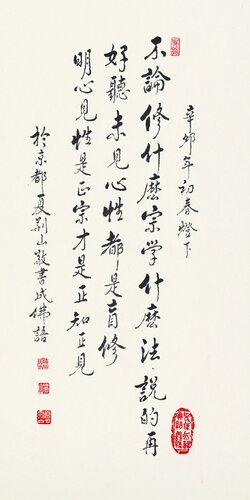 辛卯年初春燈下
不論修什麼宗學什麼法說的再
好聽未見心性都是盲修
明心見性是正宗才是正知正見
於京都夏荆山敬書成佛語